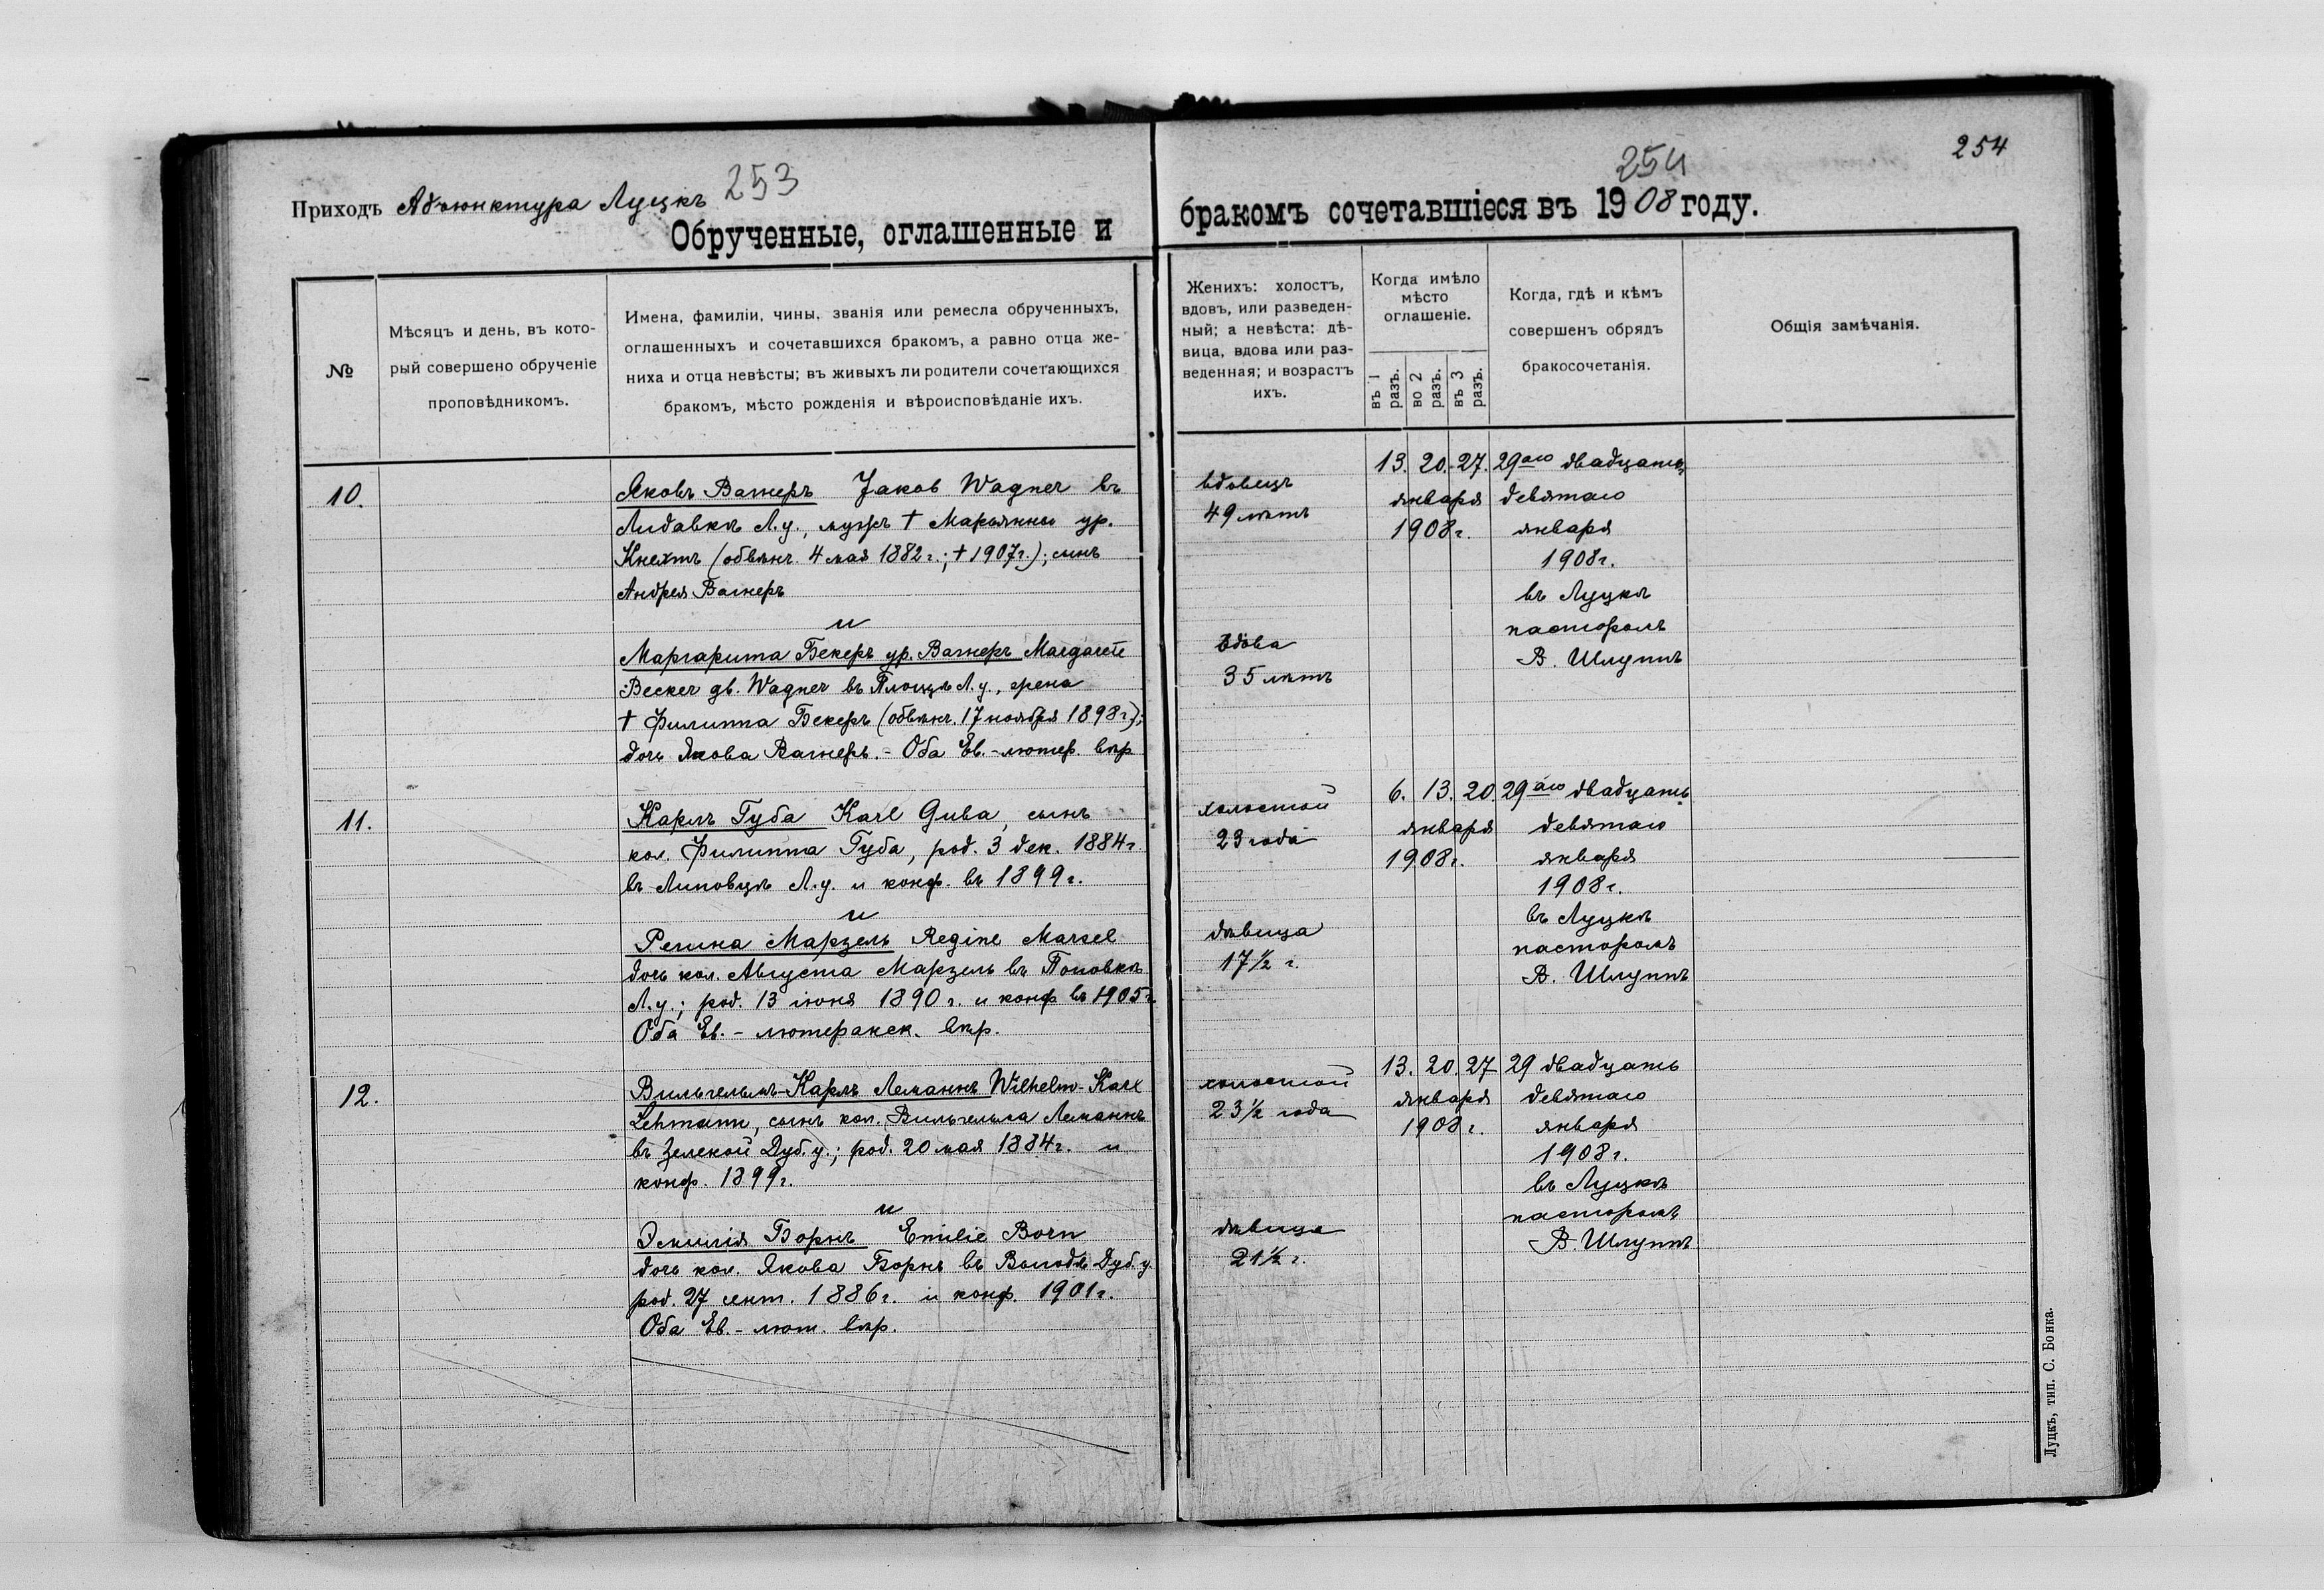 Приходъ Адъюнктура Луцкъ 253
Обрученные, оглашенные и
№
Мѣсяцъ и день, въ кото-
рый совершено обрученіе
проповѣдникомъ.
Имена, фамиліи, чины, званія или ремесла обрученныхъ,
оглашенныхъ и сочетавшихся бракомъ, а равно отца же-
ниха и отца невѣсты; въ живыхъ ли родители сочетающихся
бракомъ, мѣсто рожденія и вѣроисповѣданіе ихъ.
10.
Яковъ Вагнеръ Jakob Wagner въ
Лидавкѣ Л.у., мужъ † Марьянны ур.
Кнехтъ (обвѣнч. 4 мая 1882 г.; † 1907 г.); сынъ
Андрея Вагнеръ
и
Маргарита Бекеръ ур. Вагнеръ Margarete
Becker gb. Wagner въ Площѣ Л.у., жена
† Филиппа Бекеръ (обвѣнч. 17 ноября 1898 г.);
дочь Якова Вагнеръ. - Оба Ев.-лютер. вѣр.
11.
Карлъ Губа Karl Guba, сынъ
кол. Филиппа Губа, род. 3 дек. 1884 г.
въ Липовцѣ Л.у. и конф. въ 1899 г.
и
Регина Марзель Regine Marsel
дочь кол. Августа Марзель въ Поповкѣ
Л.у.; род. 13 іюня 1890 г. и конф въ 1905 г.
Оба Ев.- лютеранск. вѣр.
12.
Вильгельмъ-Карлъ Леманнъ Wilhelm-Karl
Lehmann, сынъ кол. Вильгельма Леманнъ
въ Зеленой Дуб.у.; род. 20 мая 1884 г. и
конф. 1899 г.
и
Эмилія Борнъ Emilie Born
дочь кол. Якова Борнъ въ Дуб.у.
род. 27 сент. 1886 г. и конф. 1901 г.
Оба Ев.- лют. вѣр.
254
254
бракомъ сочетавшіеся въ 1908 году.
Женихъ: холостъ,
вдовъ, или разведен-
ный; а невѣста: дѣ-
вица, вдова или раз-
веденная; и возрастъ
ихъ.
Когда имѣло
мѣсто
оглашеніе.
въ 1 разъ.
во 2 разъ.
въ 3 разъ.
Когда, гдѣ и кѣмъ
совершенъ обрядъ
бракосочетанія.
Общія замѣчанія.
вдовецъ
49 лѣтъ
вдова
35 лѣтъ
13. 20. 27.
января
1908 г.
29аго двадцать
девятаго
января
1908 г.
въ Луцкѣ
пасторомъ
В. Шлуппъ
холостой
23 года
дѣвица
17½ г.
6. 13. 20
января
1908 г.
29аго двадцать
девятаго
января
1908 г.
въ Луцкѣ
пасторомъ
В. Шлуппъ
холостой
23½ года
дѣвица
21½ г.
13. 20. 27
января
1908 г.
29 двадцать
девятаго
января
1908 г.
въ Луцкѣ
пасторомъ
В. Шлуппъ
Луцкъ, тип. С. Бонка.